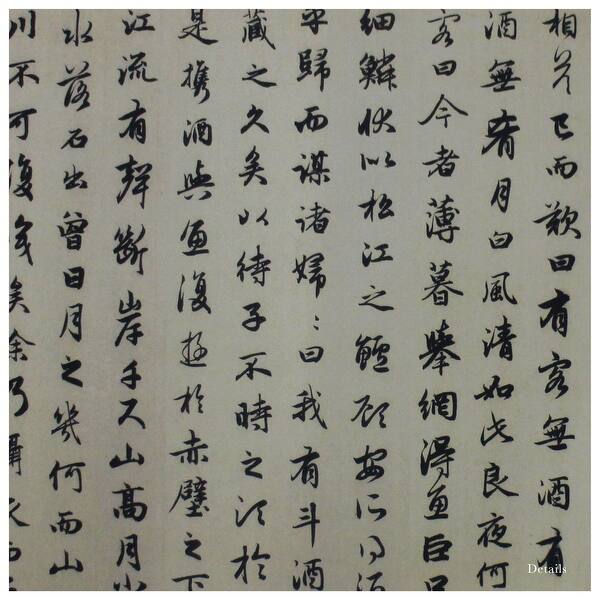 相答已而歎曰有客無酒有
酒無肴月白風清如此良夜何
客曰今者薄暮舉網得魚巨口
細鱗狀似松江之鱸顧安所得酒
乎歸而謀諸婦〻曰我有斗酒
藏之久矣以待子不時之須於
是攜酒與魚復遊於赤壁之下
江流有聲斷岸千尺山高月小
水落石出曾日月之幾何而山
川不可復識矣余乃攝衣而
Details